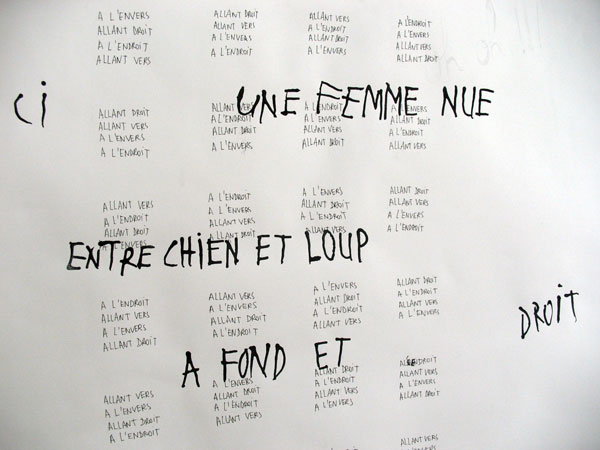 A L'ENVERS
ALLANT DROIT
A L'ENDROIT
ALLANT VERS
ALLANT DROIT
ALLANT VERS
A L'ENVERS
A L'ENDROIT
ALLANT VERS
ALLANT DROIT
A L'ENVERS
A L'ENDROIT
A L'ENDROIT
A L'ENVERS
ALLANT VERS
ALLANT DROIT
CI
UNE FEMME NUE
ALLANT DROIT
ALLANT VERS
A L'ENVERS
A L'ENDROIT
ALLANT VERS
A L'ENDROIT
ALLANT DROIT
A L'ENVERS
A L'ENDROIT
A L'ENVERS
ALLANT VERS
ALLANT DROIT
A L'ENVERS
ALLANT DROIT
A L'ENDROIT
ALLANT VERS
ALLANT VERS
A L'ENDROIT
ALLANT DROIT
A L'ENVERS
A L'ENDROIT
A L'ENVERS
ALLANT VERS
ALLANT DROIT
A L'ENVERS
ALLANT DROIT
A L'ENDROIT
ALLANT VERS
ALLANT DROIT
ALLANT VERS
A L'ENDROIT
A L'ENVERS
ENTRE CHIEN ET LOUP
A L'ENDROIT
ALLANT VERS
A L'ENVERS
ALLANT DROIT
ALLANT VERS
A L'ENVERS
ALLANT DROIT
A L'ENDROIT
A L'ENVERS
ALLANT DROIT
A L'ENDROIT
ALLANT VERS
ALLANT DROIT
A L'ENDROIT
ALLANT VERS
A L'ENVERS
DROIT
A FOND ET
ALLANT VERS
A L'ENVERS
ALLANT DROIT
A L'ENDROIT
A L'ENVERS
ALLANT DROIT
A L'ENDROIT
ALLANT VERS
ALLANT DROIT
A L'ENDROIT
ALLANT VERS
A L'ENVERS
A L'ENDROIT
ALLANT VERS
A L'ENVERS
ALLANT DROIT
ALLANT VERS